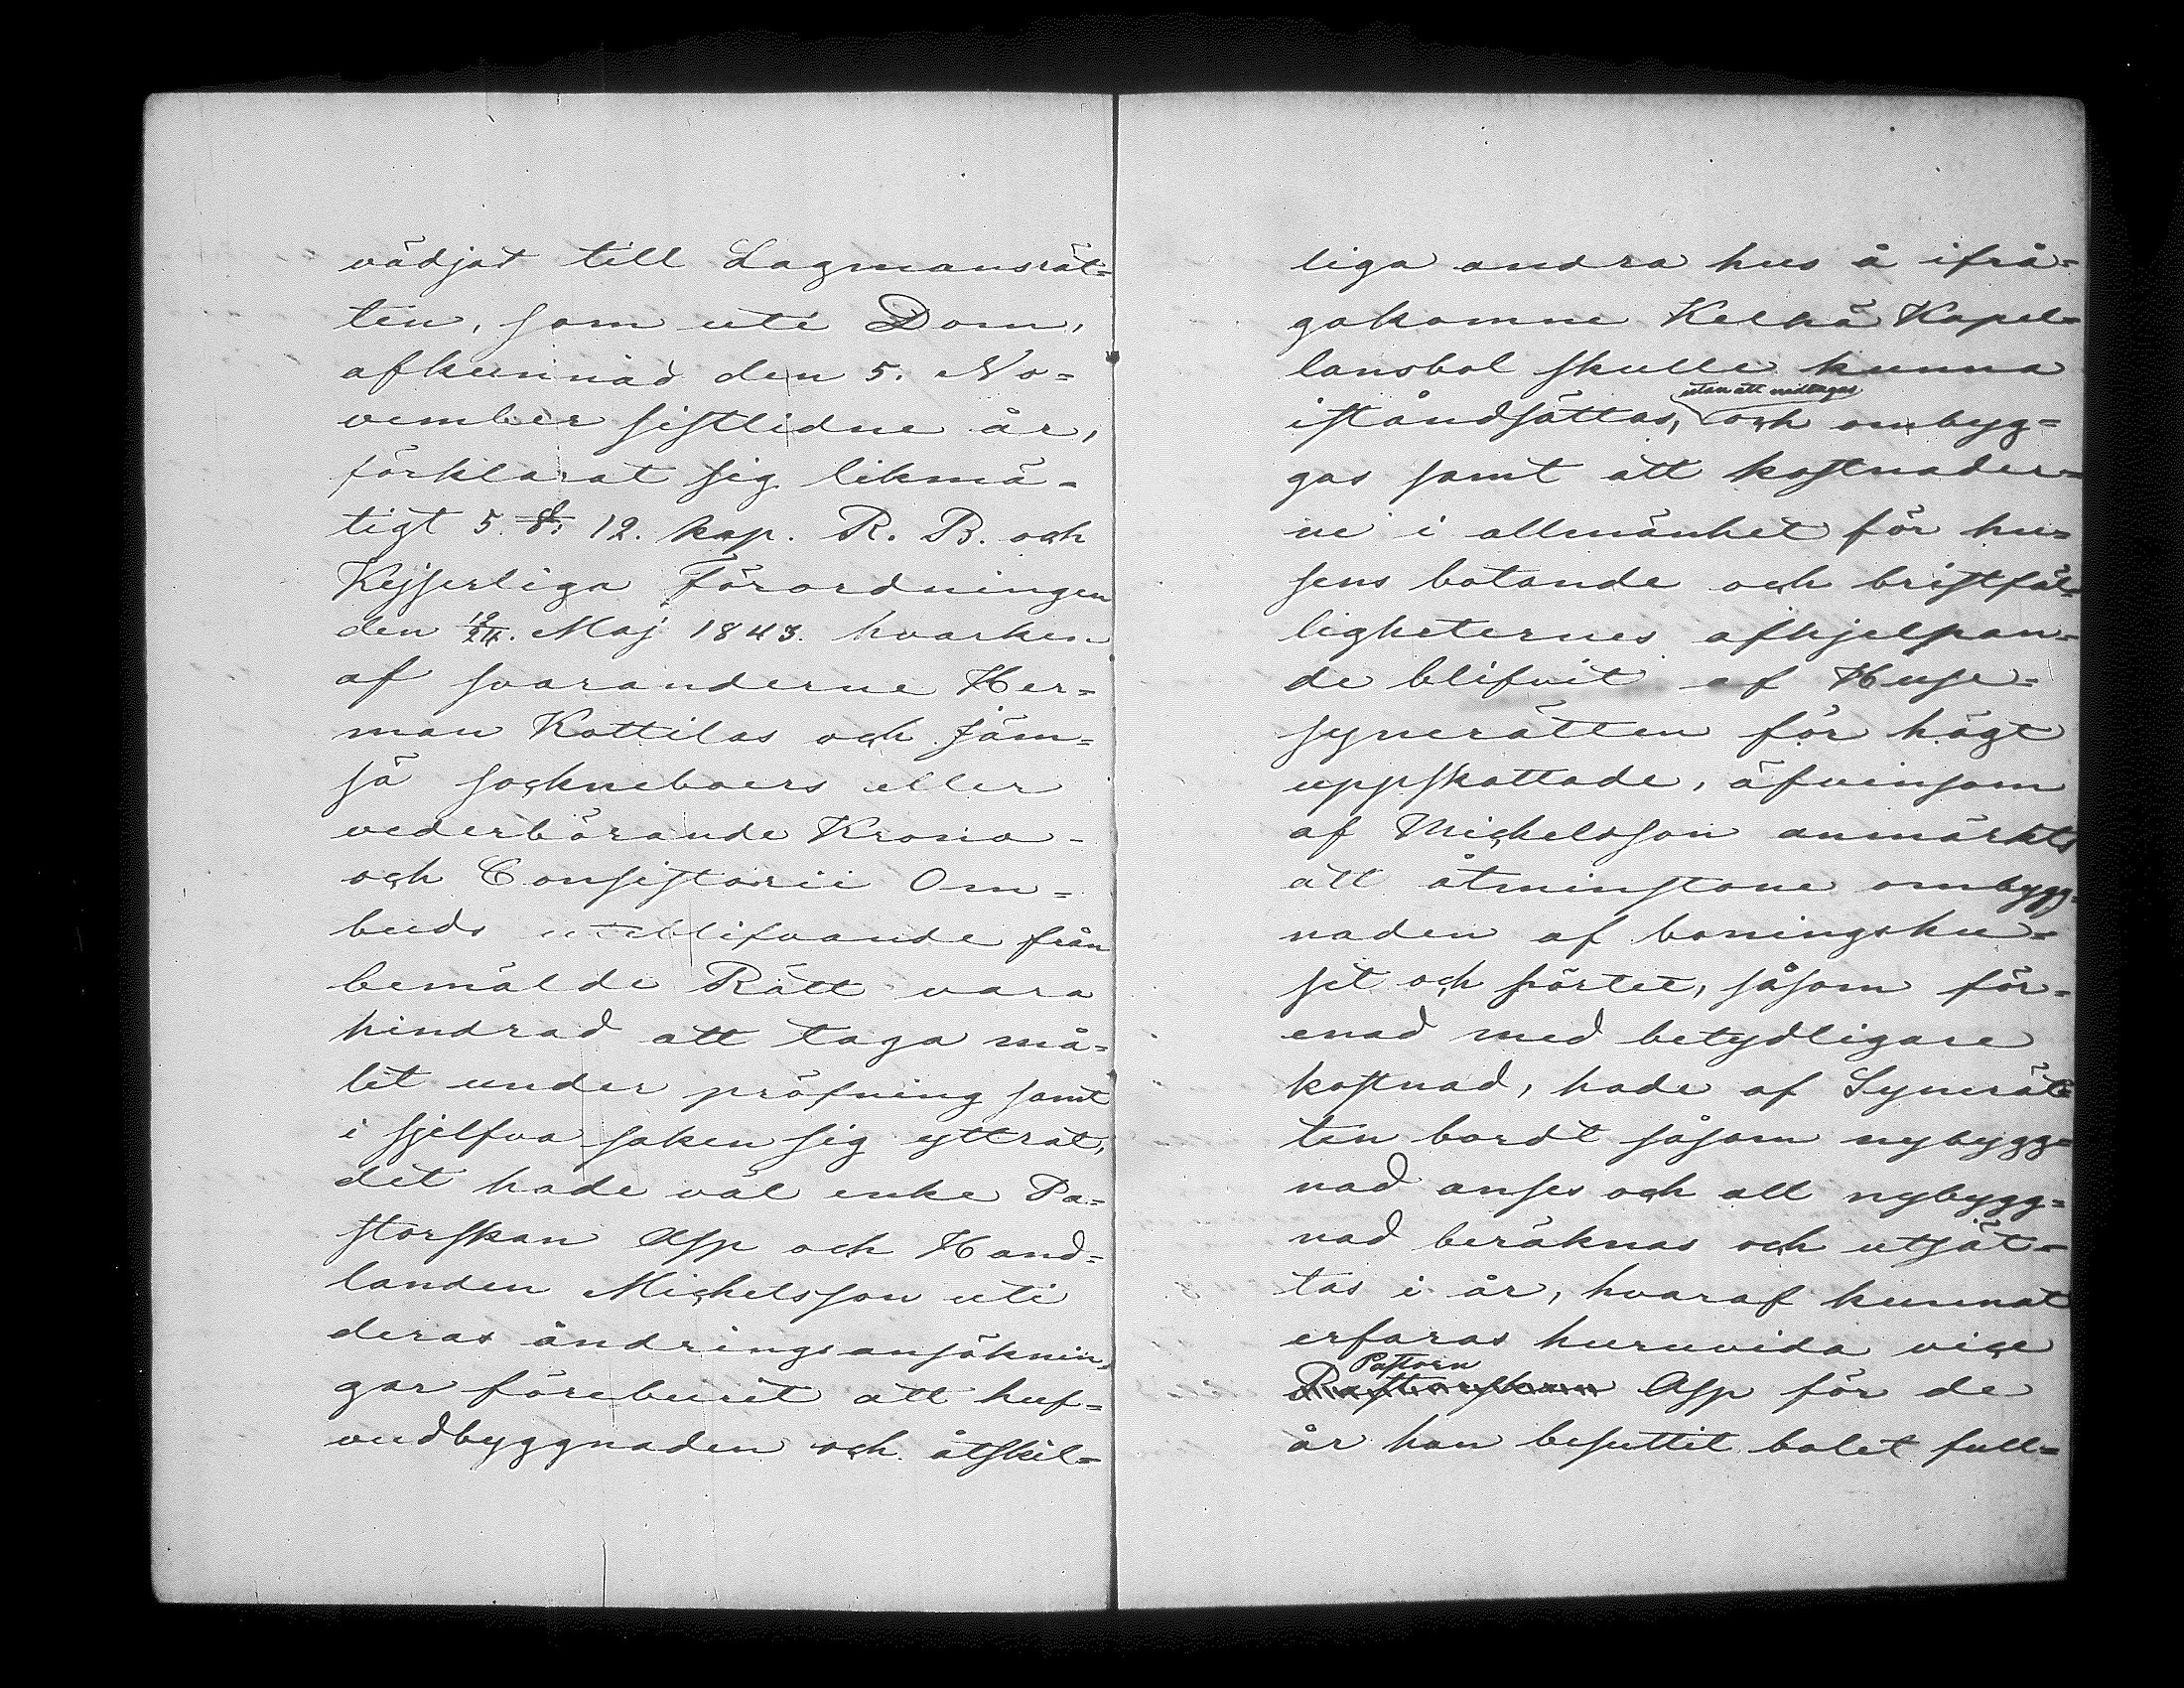 vädjat till Lagmansrät=
ten, som uti Dom,
afkunnad den 5. No=
vember sistlidne år,
förklarat sig likmä=
tigt 5. §. 12. kap. R. B. och
Kejserliga Förordningen
den 12/24. Maj 1843. hvarken
af svaranderne Her=
man Kottilas och Jäm=
sä sockneboers eller
vederbörande Krono=
och Consistorii Om=
buds uteblifvande från
bemälde Rätt vara
hindrad att taga må=
let under pröfning samt
i sjelfva saken sig yttrat,
det hade väl enke Pa=
storskan Asp och Hand=
landen Michelsson uti
deras ändringsansöknin=
gar föreburit att huf=
vudbyggnaden och åtskil=
liga andra hus å ifrå=
gakomne Kelhä Kapel=
lansbol skulle kunna
uten att nedtagas
iståndsättas, och ombyg=
gas samt att kostnader=
ne i allmänhet för hu=
sens botande och bristfäl=
ligheternes afhjelpan=
de blifvit af Huse=
synerätten för högt
uppskattade, äfvensom
af Michelsson anmärkts
att åtminstone ombygg=
naden af boningshu=
set och pörtet, såsom för=
enad med betydligare
kostnad, hade af Synerät=
ten bordt såsom nybygg=
nad anses och all nybygg=
nad beräknas och utsät=
tas i år, hvaraf kunnat
erfaras huruvida vice
Pastorn
Pastorskan Asp för de
år han besuttit bolet full=